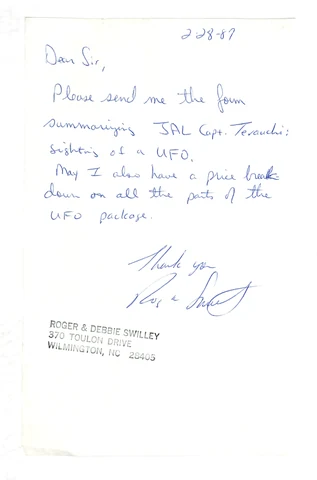 2-28-87
Dear Sir,
Please send me the form
summarizing JAL Capt. Terauchi's
sighting of a UFO.
May I also have a price break
down on all the parts of the
UFO package.
Thank you
ROGER & DEBBIE SWILLEY
370 TOULON DRIVE
WILMINGTON, NC 28405